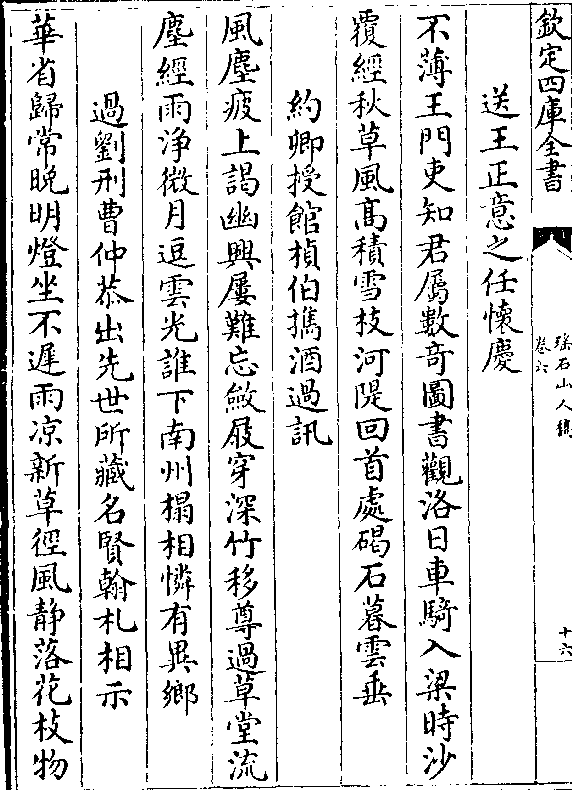 欽定四庫全書
瑤石山人稿
卷六
十六
送王正意之任懷慶
不薄王門吏知君屬數奇圖書觀洛日車騎入梁時沙
覆經秋草風髙積雪枝河隄回首處碣石暮雲垂
約卿授館楨伯擕酒過訊
風塵疲上謁幽興屢難忘斂屐穿深竹移尊過草堂流
塵經雨净微月逗雲光誰下南州榻相憐有異鄉
過劉刑曹仲恭出先世所藏名賢翰札相示
華省歸常晚明燈坐不遲雨凉新草徑風静落花枝物